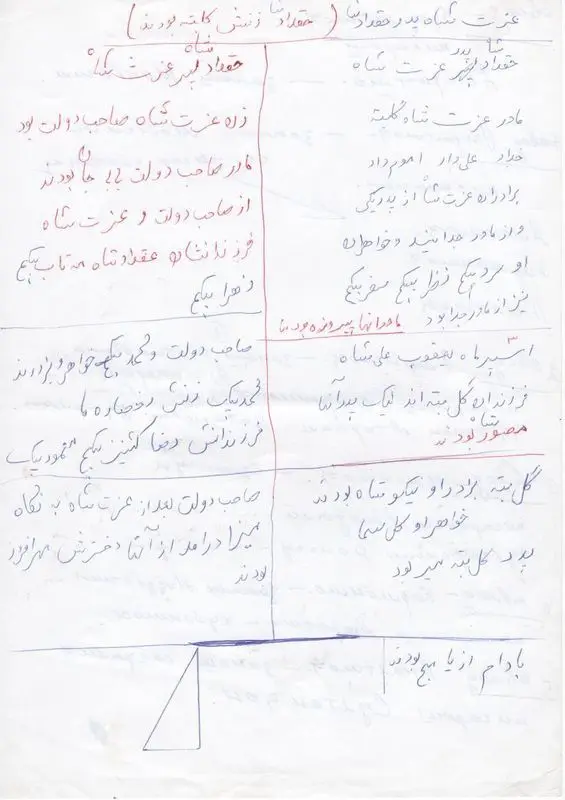 عزت شاه پدر حقداد شا ( حقداد شا زنش گلته بودند )
شا پدر
حقداد پسر عزت شاه
مادر عزت شاه گلمته
خداد علی دار اموم داد
برادران عزت شاه از پدر یکی
و از مادر جدا بیند و خواهران
او سرو بیگم زفرا بیگم سفر بیگم
نیز از مادر جدا بود مادر آنها پیروزه بود
اسپر ماه یعقوب علی شاه
فرزندان گل بته اند لیک پدر آنها
منصور شاه بودند
گل بته برادر او نیکو شاه بودند
خواهر او گل سما
پدر گل بته میر بود
بادام از یا هیچ بودند
شاه
حقداد پسر عزت شاه
زن عزت شاه صاحب دولت بود
مادر صاحب دولت بی بی جان بودند
از صاحب دولت و عزت شاه
فرزندانشان حقداد شاه مهتاب بیگم
زهرا بیگم
صاحب دولت و محمد بیگ خواهر و برادرند
محمد بیک زنش رخصاره ما
فرزندانش رضا کنیز بیگم محمود بیک
صاحب دولت بعد از عزت شاه به نکاه
میرزا درامد از آنها دخترش مهر افروز
بودند